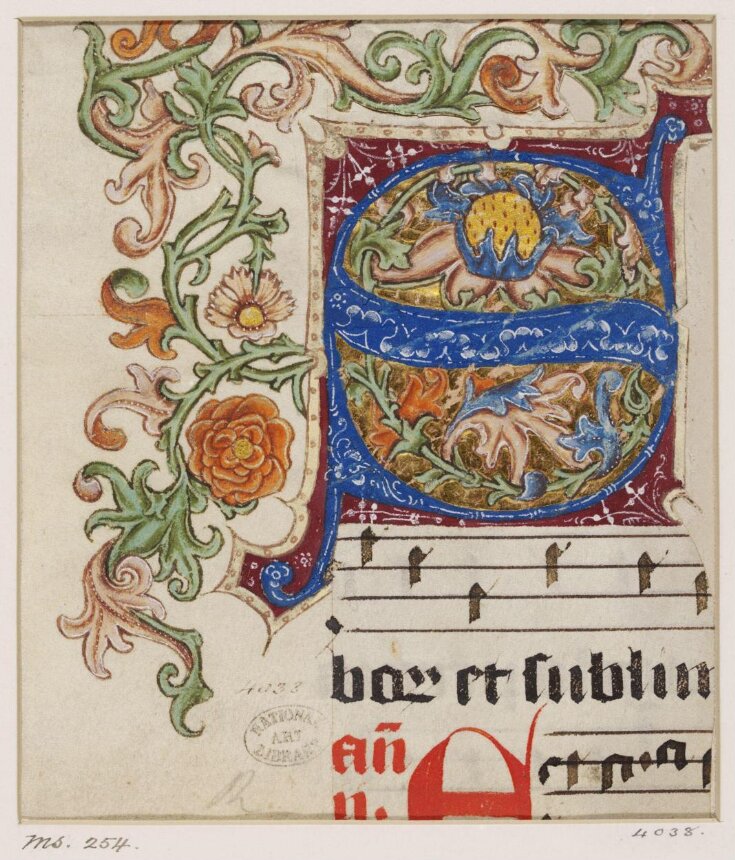 E
bor et sublim
4038
NATIONAL
ART
LIBRARY
añ
A
n.
Ms. 254.
4038.